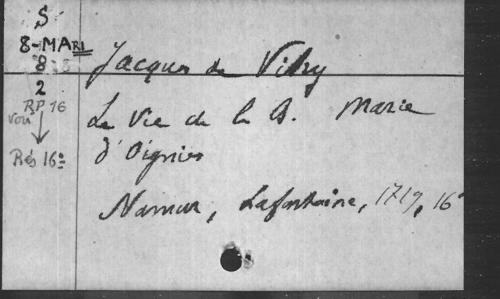 S
8-MARI
8
2
RP 16
voir
Rés 16°
Jacques de Vitry
La Vie de la B. Marie
d'Oignies
Namur, Lafontaine, 1719, 16°